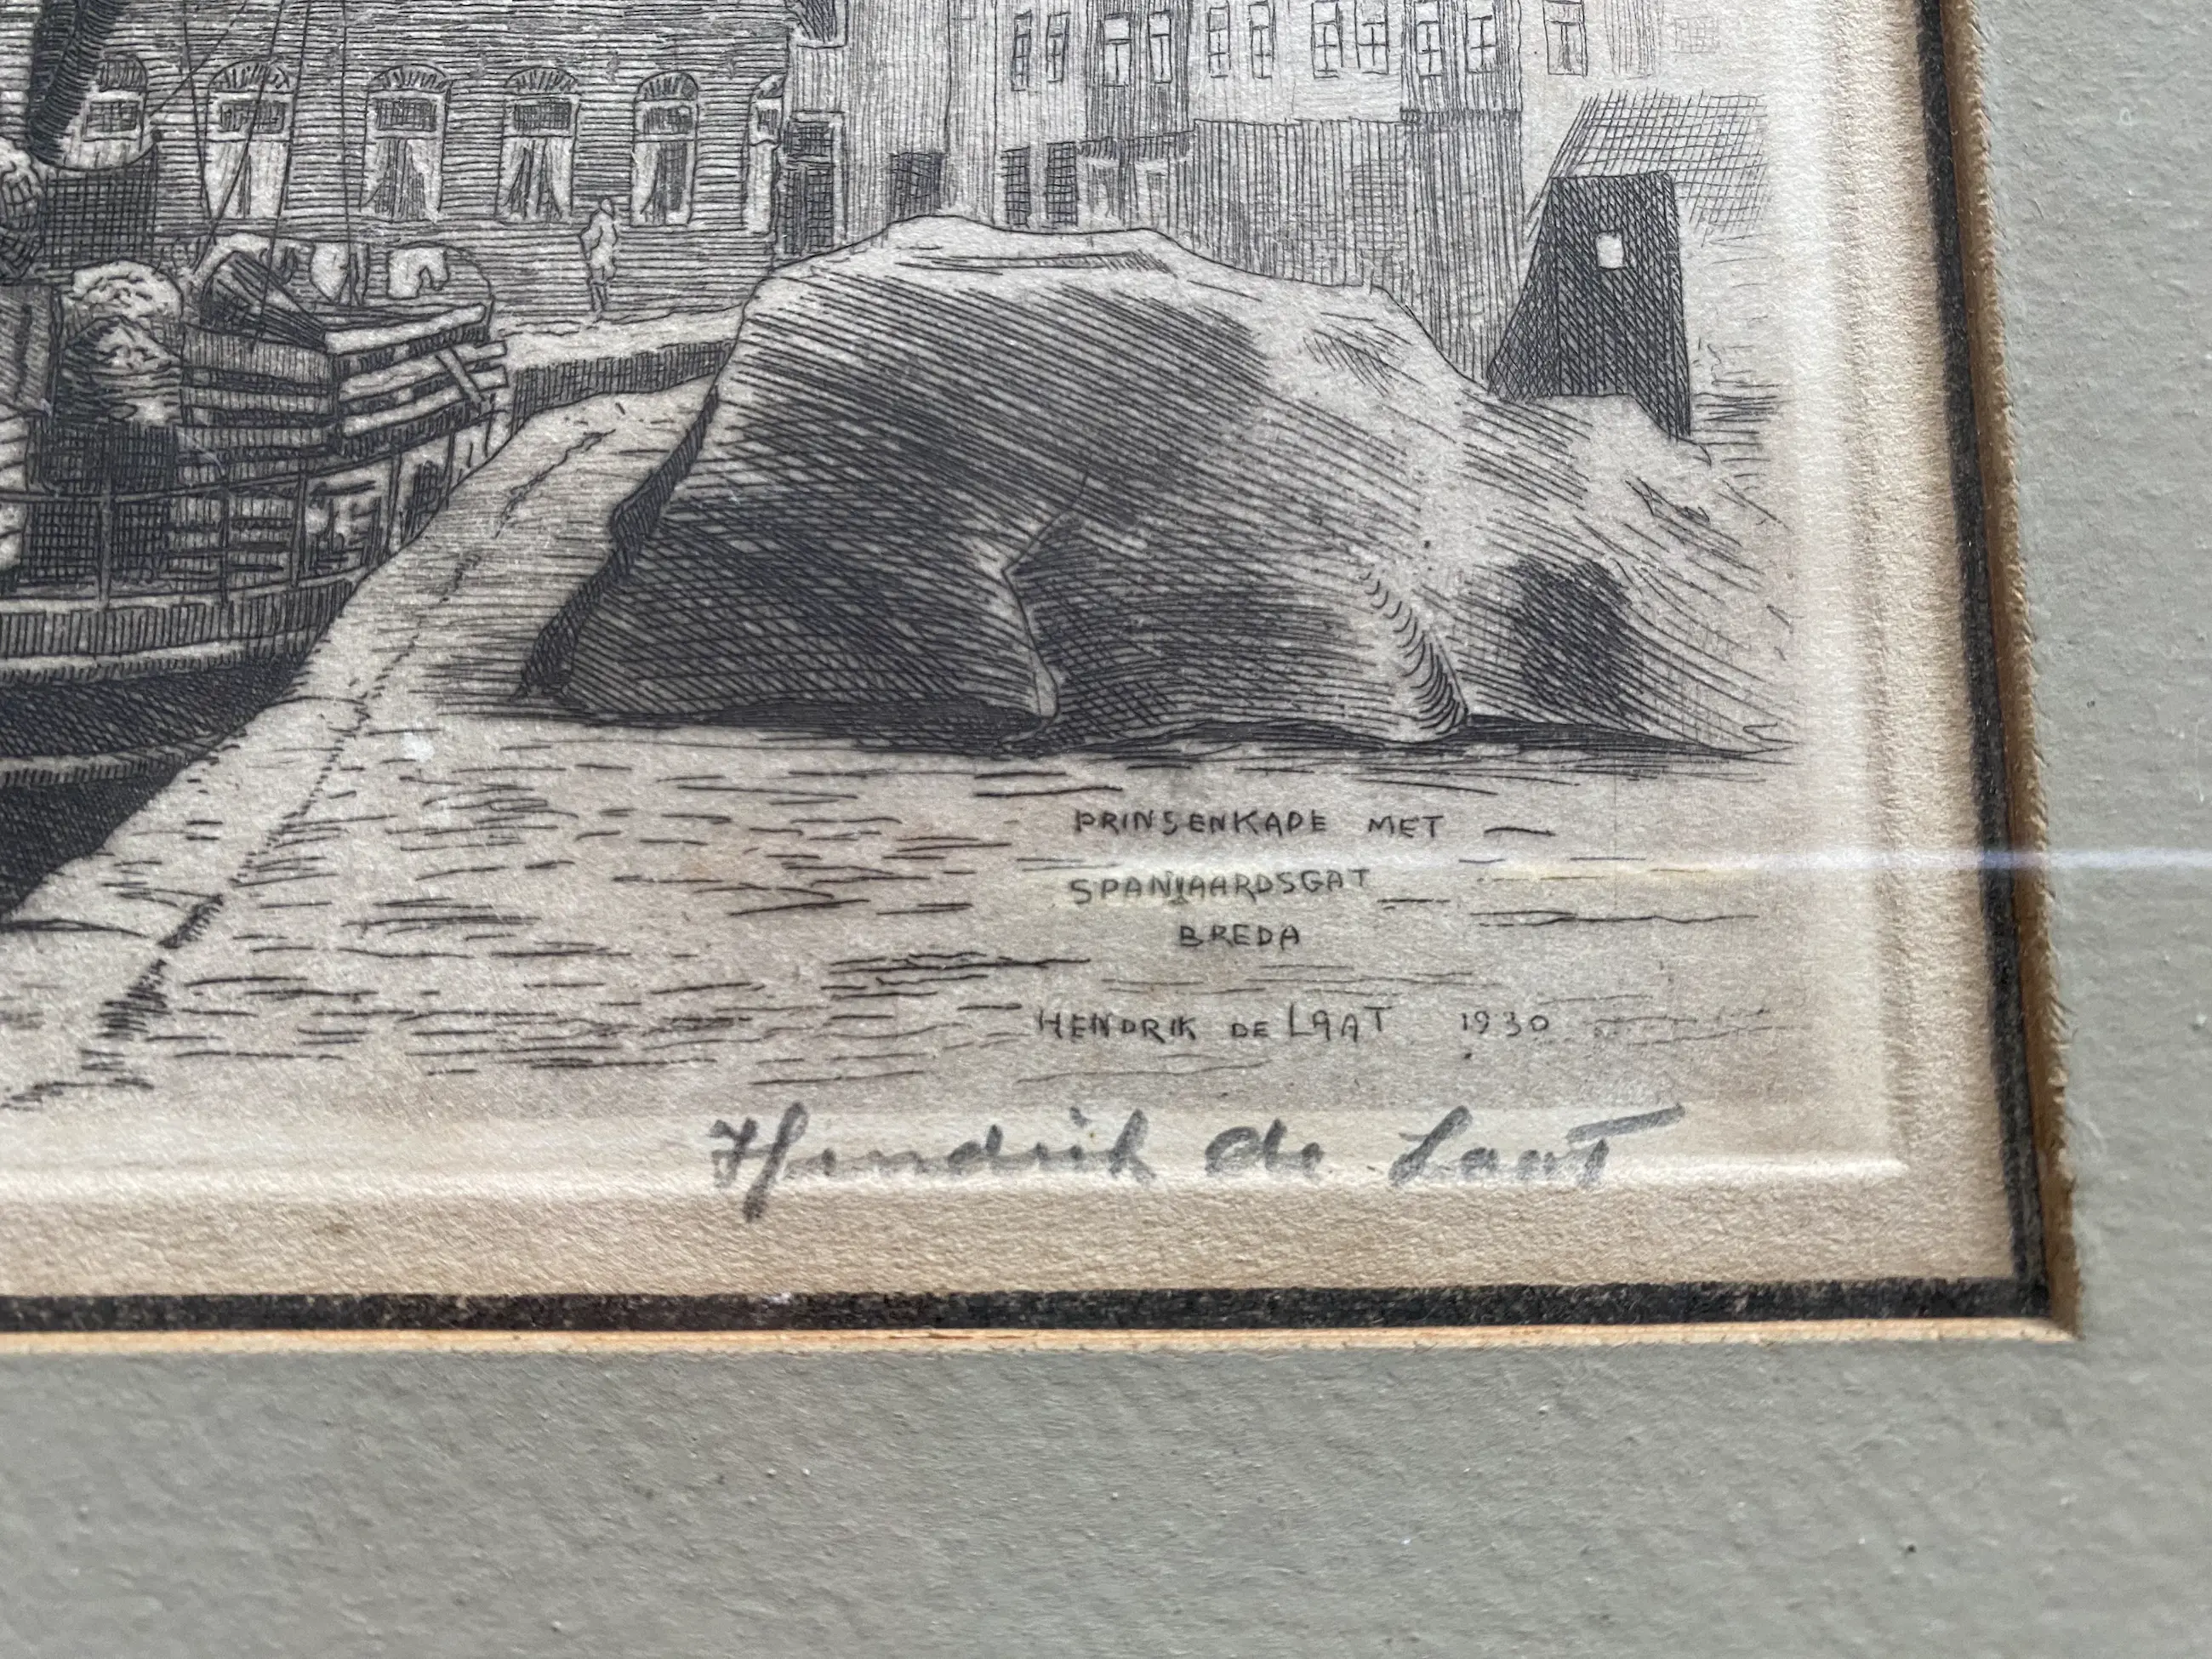 PRINSENKADE MET
SPANJAARDSGAT
BREDA
HENDRIK DE LAAT 1930
Hendrik de Laat